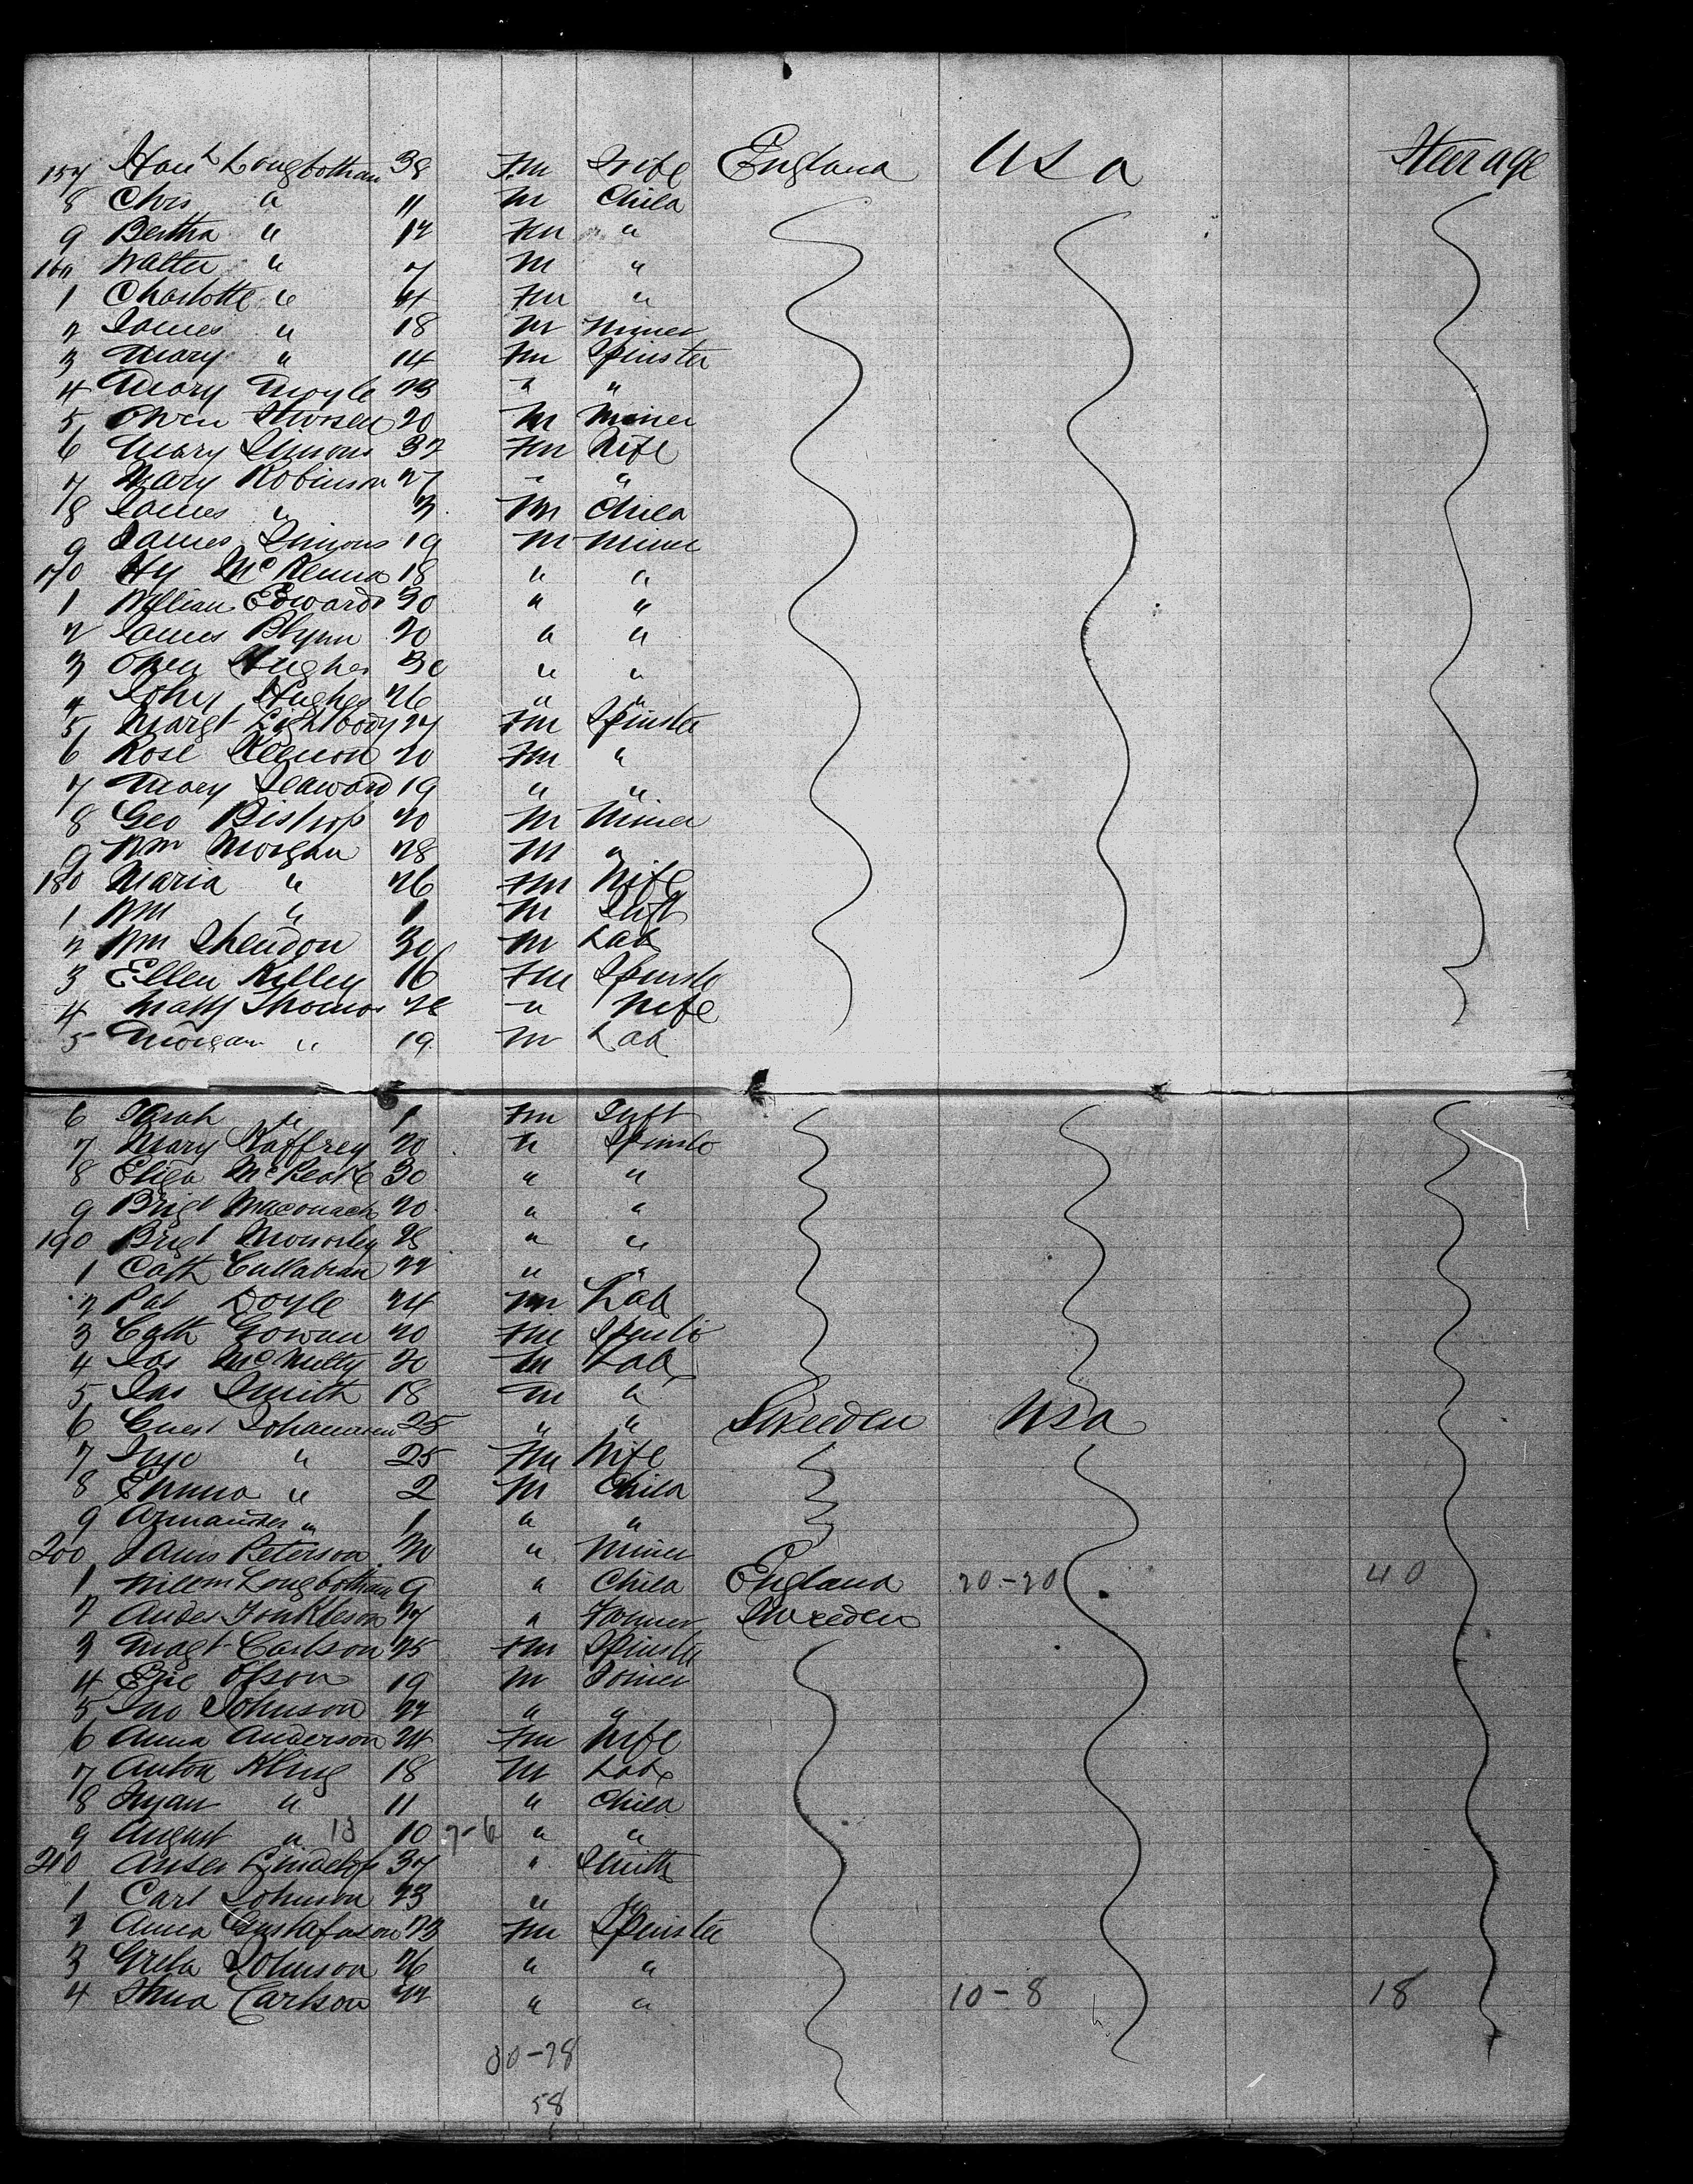 157 Han h Longbotham 38 Fm Wife England USa Steerage
8 Chris " 11 M Child
9 Bertha " 12 Fm "
160 Walter " 7 M "
1 Charlotte " 4 Fm "
2 James " 18 M Miner
3 Mary " 14 Fm Spinster
4 Mary Moyle 23 " "
5 Owen 20 M Miner
6 Mary Simons 32 Fm Wife
7 Mary Robinson 27 " "
8 James " 3 M Child
9 James Simons 19 M Miner
170 Hy McKenna 18 " "
1 William Edwards 30 " "
2 James Blynn 20 " "
3 Owen Hughes 30 " "
4 John Hughes 26 " "
5 Margt Lightbody 27 Fm Spinster
6 Rose 20 Fm "
7 Mary Seaward 19 " "
8 Geo Bishop 20 M Miner
9 Wm Morgan 28 M "
180 Maria " 26 Fm Wife
1 Wm " 1 M Inft
2 Wm Shendon 30 M Lab
3 Ellen Killey 16 Fm Spinste
4 Thomas " Wife
5 Morgan " 19 M Lab
6 Sarah " 1 Fm Inft
7 Mary Kaffrey 20 " Spinste
8 Eliza 30 " "
9 Brigt Maconach 20 " "
190 Brigt 28 " "
1 Cath Callahan 22 " "
2 Pat Doyle 24 M Lab
3 Cath Gowan 20 Fm Spinste
4 Jas McNulty 20 M Lab
5 Jas Smith 18 M "
6 Johannsen 25 " " Sweeden Usa
7 " 25 Fm Wife
8 Emma " 2 M Child
9 Armander " 1 " "
200 James Peterson 20 " Miner
1 Willm Longbotham 9 " Child England 20-20 40
2 Andes 27 " Farmer Sweeden
3 Magt Carlson 25 Fm Spinste
4 Eric Olson 19 M Joiner
5 Jno Johnson 22 " "
6 Anna Anderson 24 Fm Wife
7 Anton Kling 18 M Lab
8 " 11 " Child
9 August " 13 10 7-6 " "
210 Lindelof 37 " Smith
1 Carl Johnson 23 " "
2 Anna Gustafason 23 Fm Spinster
3 Greta Johnson 26 " "
4 Carlson 22 " " 10-8 18
30-28
58